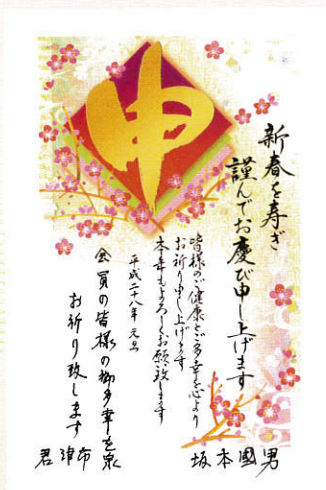 申
新春を寿ぎ
謹んでお慶び申し上げます
皆様のご健康とご多幸を心より
お祈り申し上げます
本年もよろしくお願い致します
平成二十八年 元旦
会員の皆様の御多幸を
お祈り致します
君津市
坂本國男